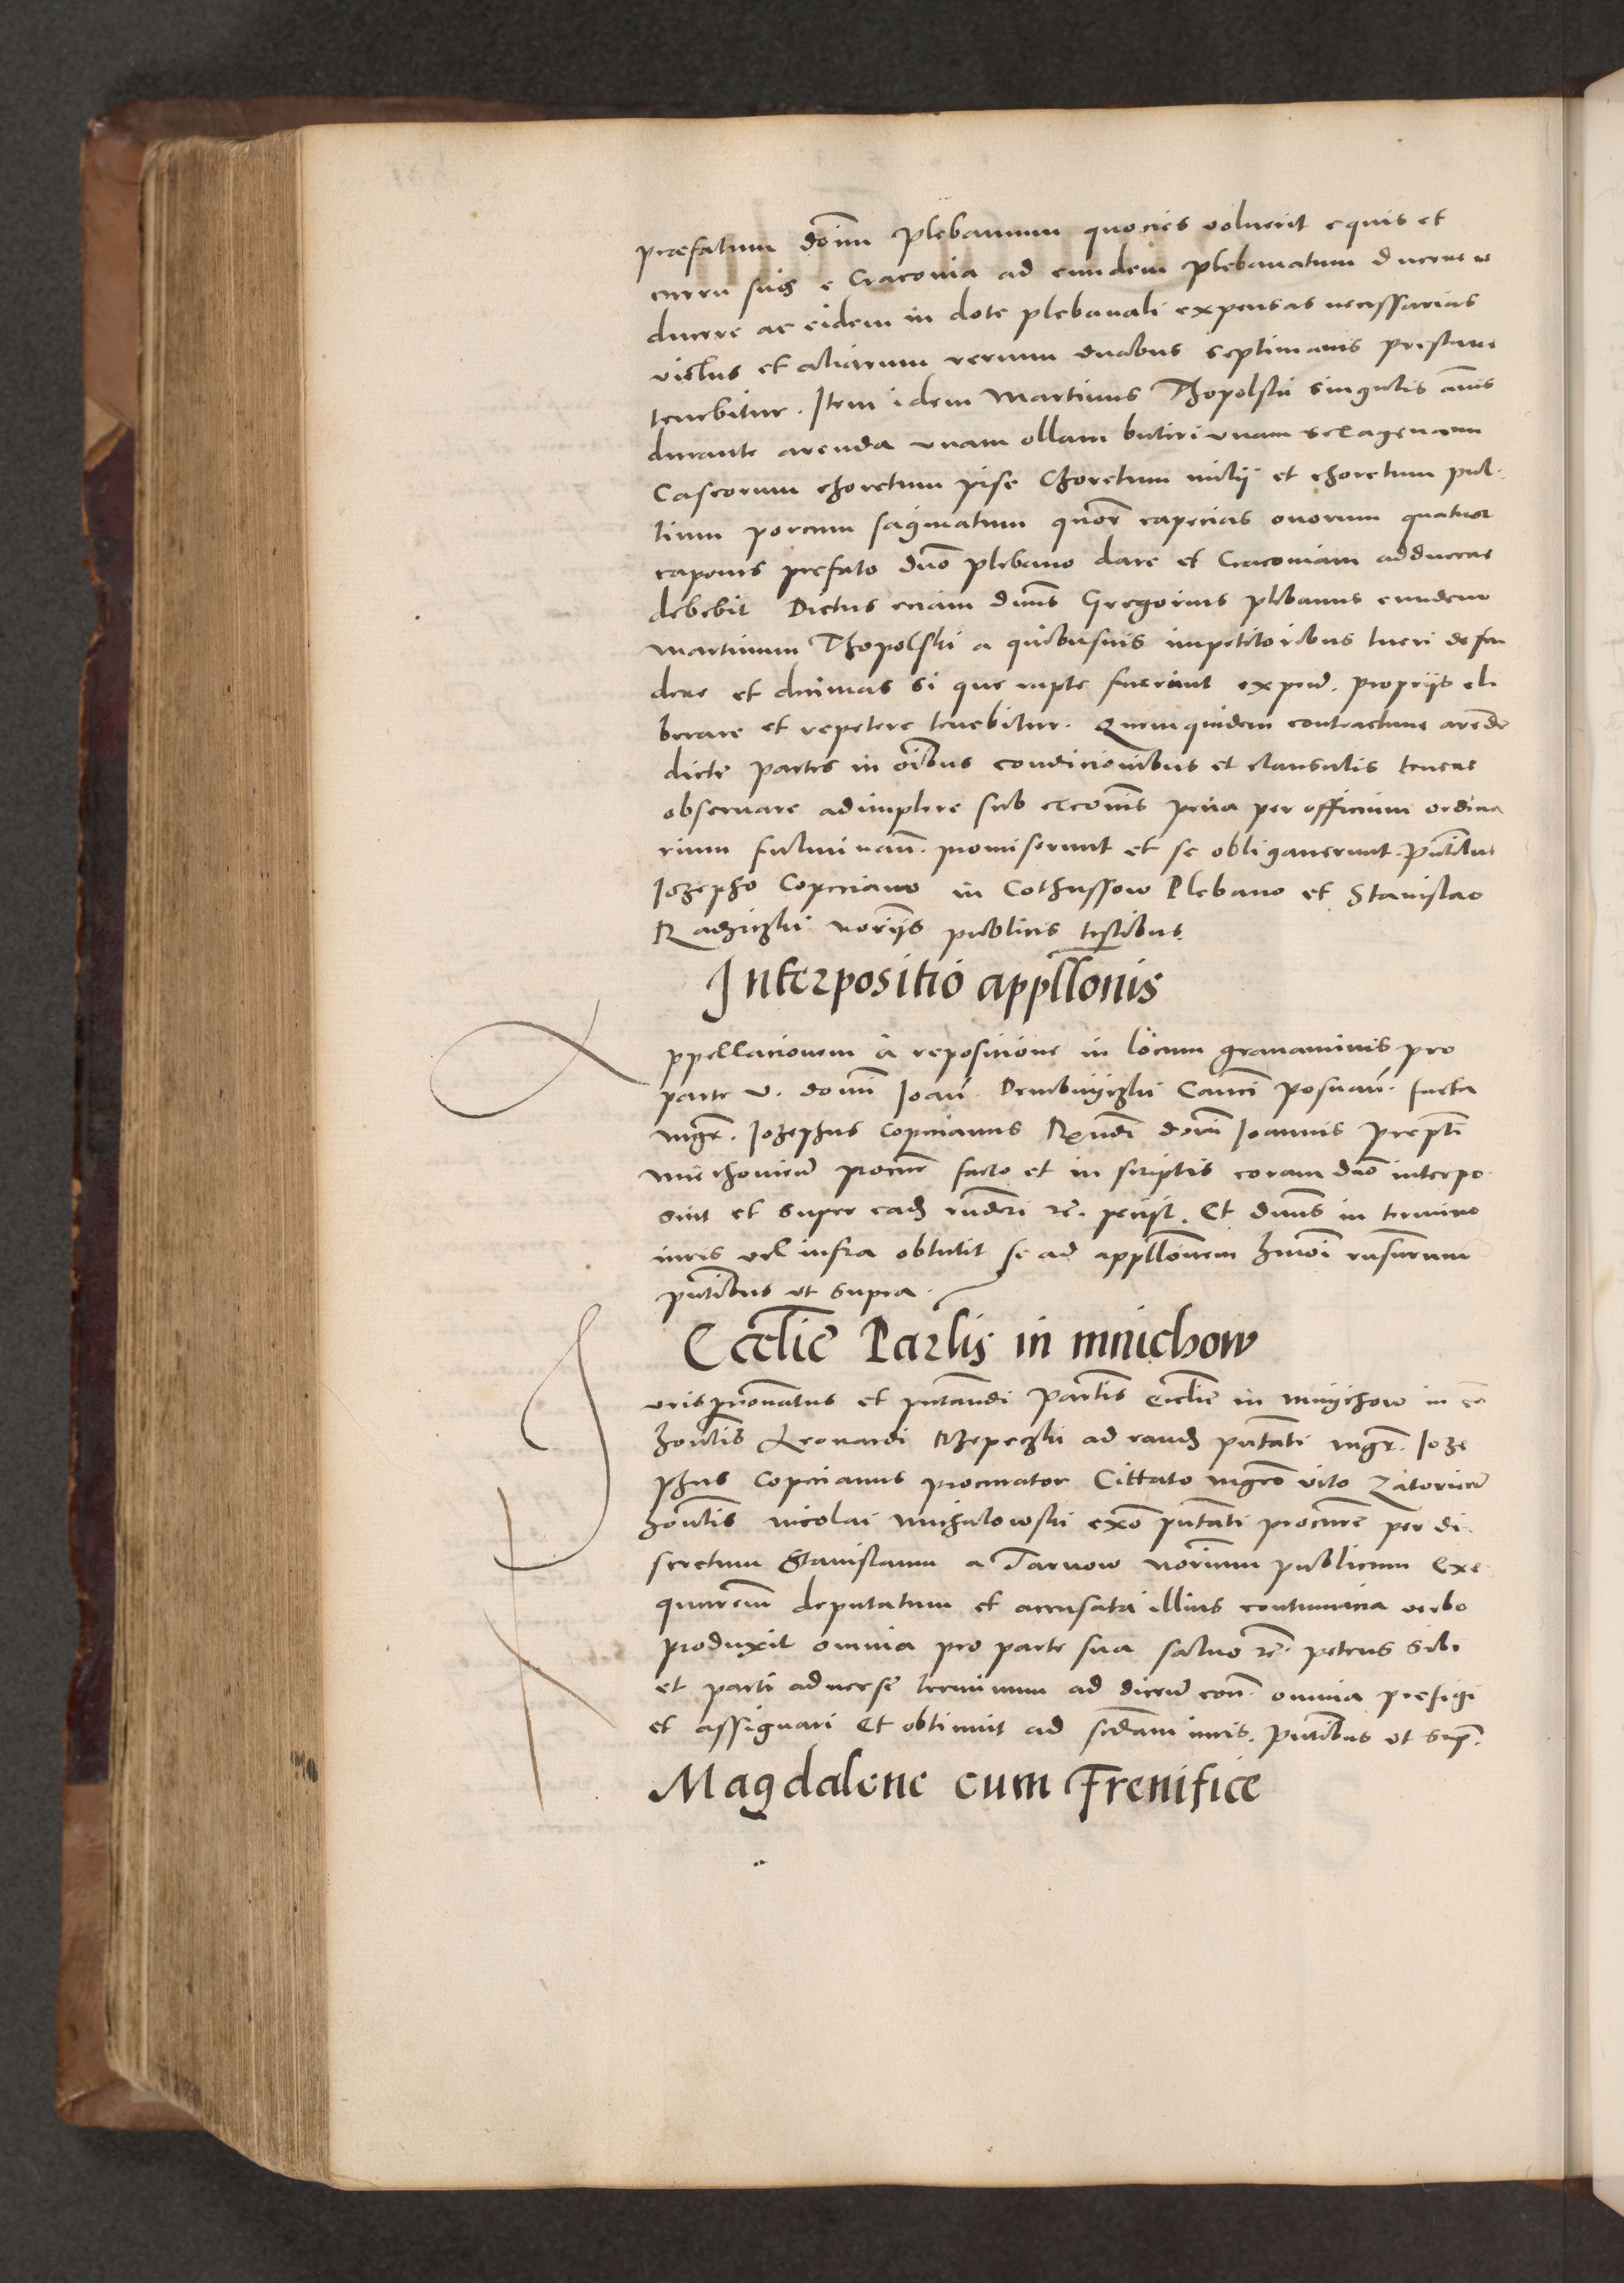 prefatum doīm plebanum quocies voluerit equis et
curru suis e Cracovia ad eundem plebanatum ducere
ducere ac eidem in dote plebanali expensas necessarias
victus et aliarum rerum duabus septimanis prestare
tenebitur. Item idem Martinus Thopolski singulis annis
durante arenda unam ollam butiri unam sexagenam
Caseorum choretum pise Choretum milij et choretum pul-
tium porcum saginatum quatuor capecias ovorum quatuor
capones prefato dno plebano dare et Cracoviam adducere
debebit Dictus eciam dnus Gregorius plebanus eundem
Martinum Thopolski a quibusvis impetitoribus tueri defen
dere et decimas si que rapte fuerint expens. propriis eli
berare et repetere tenebitur. Quemquidem contractum arende
dicte partes in oibus condicionibus et clausulis tenere
observare adimplere sub excomis pena per officium ordina
rium fulminan. promiserunt et se obligaverunt. pntibus
Jozepho Copciano in Cothussow Plebano et Stanislao
Radziczki norijs publicis testibus.
Interpositio appllonis
Appellacionem a reposicione in locum gravaminis pro
parte v. domi Joan. Dembinyczki Canci Posnan. facta
mgr. Jozephus Copcianus Rendi domi Joannis prepti
Miechovien procur facto et in scriptis coram dno interpo
suit et super eadz rnderi re. peciit. Et dnus in termino
iuris vel infra obtulit se ad appllonem hmoi rnsurum
pntibus ut supra.
Ecclie Parlis in Mnichow
Jurispronatus et pntandi partis Ecclie in Mnyichow in ca
honestis Leonardi Rzepeczki ad eandz pntati mgr. Joze
phus Copcianus procurator Cittato mgro Vito Zatorien
honestis Nicolai Michalowski exo pntati procure per di
scretum Stanislaum a Tarnow norium publicum Exe
quutorem deputatum et accusata illius contumacia verbo
produxit omnia pro parte sua salvo re. petens sibi
et parti adverse terminum ad dicend con. omnia prefigi
et assignari Et obtinuit ad scdam iuris. pntibus ut sup.
Magdalene cum Frenifice